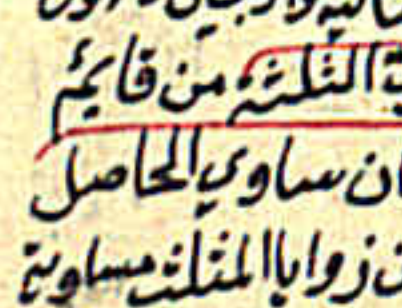 الثلثة من قايم
ان ساوي الحاصل
زوايا المثلث مساوية